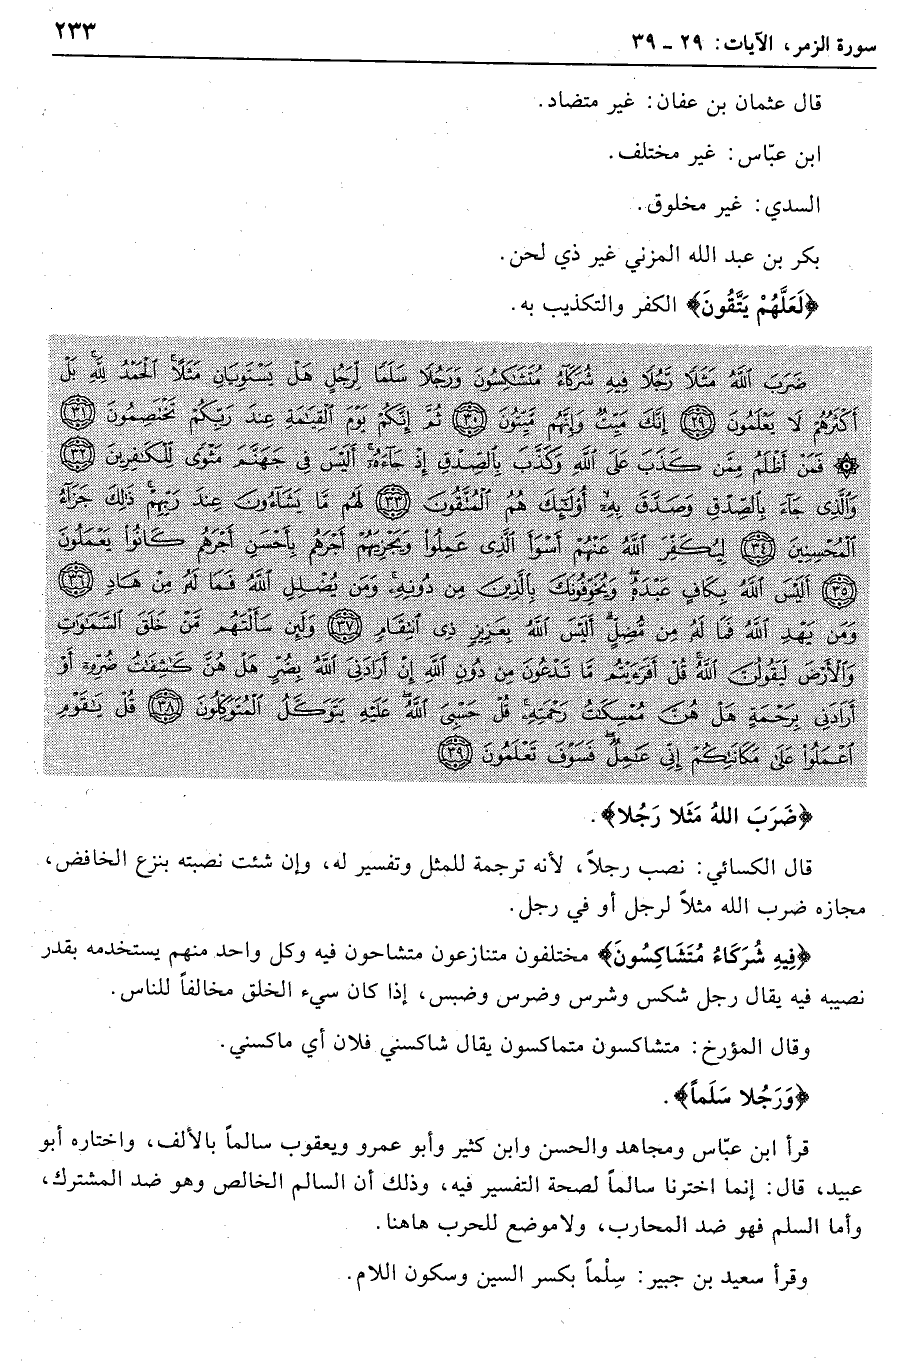 سورة الزمر، الآيات: ٢٩ - ٣٩
٢٣٣
قال عثمان بن عفان: غير متضاد.
ابن عبّاس: غير مختلف.
السدي: غير مخلوق.
بكر بن عبد الله المزني غير ذي لحن.
﴿لَعَلَّهُمْ يَتَّقُونَ﴾ الكفر والتكذيب به.
ضَرَبَ اللَّهُ مَثَلًا رَّجُلًا فِيهِ شُرَكَاءُ مُتَشَاكِسُونَ وَرَجُلًا سَلَمًا لِّرَجُلٍ هَلْ يَسْتَوِيَانِ مَثَلًا الْحَمْدُ لِلَّهِ بَلْ
أَكْثَرُهُمْ لَا يَعْلَمُونَ ﴿٢٩﴾ إِنَّكَ مَيِّتٌ وَإِنَّهُم مَّيِّتُونَ ﴿٣٠﴾ ثُمَّ إِنَّكُمْ يَوْمَ الْقِيَامَةِ عِندَ رَبِّكُمْ تَخْتَصِمُونَ ﴿٣١﴾
۞ فَمَنْ أَظْلَمُ مِمَّن كَذَبَ عَلَى اللَّهِ وَكَذَّبَ بِالصِّدْقِ إِذْ جَاءَهُ أَلَيْسَ فِي جَهَنَّمَ مَثْوًى لِّلْكَافِرِينَ ﴿٣٢﴾
وَالَّذِي جَاءَ بِالصِّدْقِ وَصَدَّقَ بِهِ أُولَئِكَ هُمُ الْمُتَّقُونَ ﴿٣٣﴾ لَهُم مَّا يَشَاءُونَ عِندَ رَبِّهِمْ ذَلِكَ جَزَاءُ
الْمُحْسِنِينَ ﴿٣٤﴾ لِيُكَفِّرَ اللَّهُ عَنْهُمْ أَسْوَأَ الَّذِي عَمِلُوا وَيَجْزِيَهُمْ أَجْرَهُم بِأَحْسَنِ الَّذِي كَانُوا يَعْمَلُونَ
﴿٣٥﴾ أَلَيْسَ اللَّهُ بِكَافٍ عَبْدَهُ وَيُخَوِّفُونَكَ بِالَّذِينَ مِن دُونِهِ وَمَن يُضْلِلِ اللَّهُ فَمَا لَهُ مِنْ هَادٍ ﴿٣٦﴾
وَمَن يَهْدِ اللَّهُ فَمَا لَهُ مِن مُّضِلٍّ أَلَيْسَ اللَّهُ بِعَزِيزٍ ذِي انتِقَامٍ ﴿٣٧﴾ وَلَئِن سَأَلْتَهُم مَّنْ خَلَقَ السَّمَاوَاتِ
وَالْأَرْضَ لَيَقُولُنَّ اللَّهُ قُلْ أَفَرَءَيْتُم مَّا تَدْعُونَ مِن دُونِ اللَّهِ إِنْ أَرَادَنِيَ اللَّهُ بِضُرٍّ هَلْ هُنَّ كَاشِفَاتُ ضُرِّهِ أَوْ
أَرَادَنِي بِرَحْمَةٍ هَلْ هُنَّ مُمْسِكَاتُ رَحْمَتِهِ قُلْ حَسْبِيَ اللَّهُ عَلَيْهِ يَتَوَكَّلُ الْمُتَوَكِّلُونَ ﴿٣٨﴾ قُلْ يَاقَوْمِ
اعْمَلُوا عَلَى مَكَانَتِكُمْ إِنِّي عَامِلٌ فَسَوْفَ تَعْلَمُونَ ﴿٣٩﴾
﴿ضَرَبَ اللهُ مَثَلا رَجُلا﴾.
قال الكسائي: نصب رجلاً، لأنه ترجمة للمثل وتفسير له، وإن شئت نصبته بنزع الخافض،
مجازه ضرب الله مثلاً لرجل أو في رجل.
﴿فِيهِ شُرَكَاءُ مُتَشَاكِسُونَ﴾ مختلفون متنازعون متشاحون فيه وكل واحد منهم يستخدمه بقدر
نصيبه فيه يقال رجل شكس وشرس وضرس وضبس، إذا كان سيء الخلق مخالفاً للناس.
وقال المؤرخ: متشاكسون متماكسون يقال شاكسني فلان أي ماكسني.
﴿وَرَجُلا سَلَماً﴾.
قرأ ابن عبّاس ومجاهد والحسن وابن كثير وأبو عمرو ويعقوب سالماً بالألف، واختاره أبو
عبيد، قال: إنما اخترنا سالماً لصحة التفسير فيه، وذلك أن السالم الخالص وهو ضد المشترك،
وأما السلم فهو ضد المحارب، ولاموضع للحرب هاهنا.
وقرأ سعيد بن جبير: سِلْماً بكسر السين وسكون اللام.